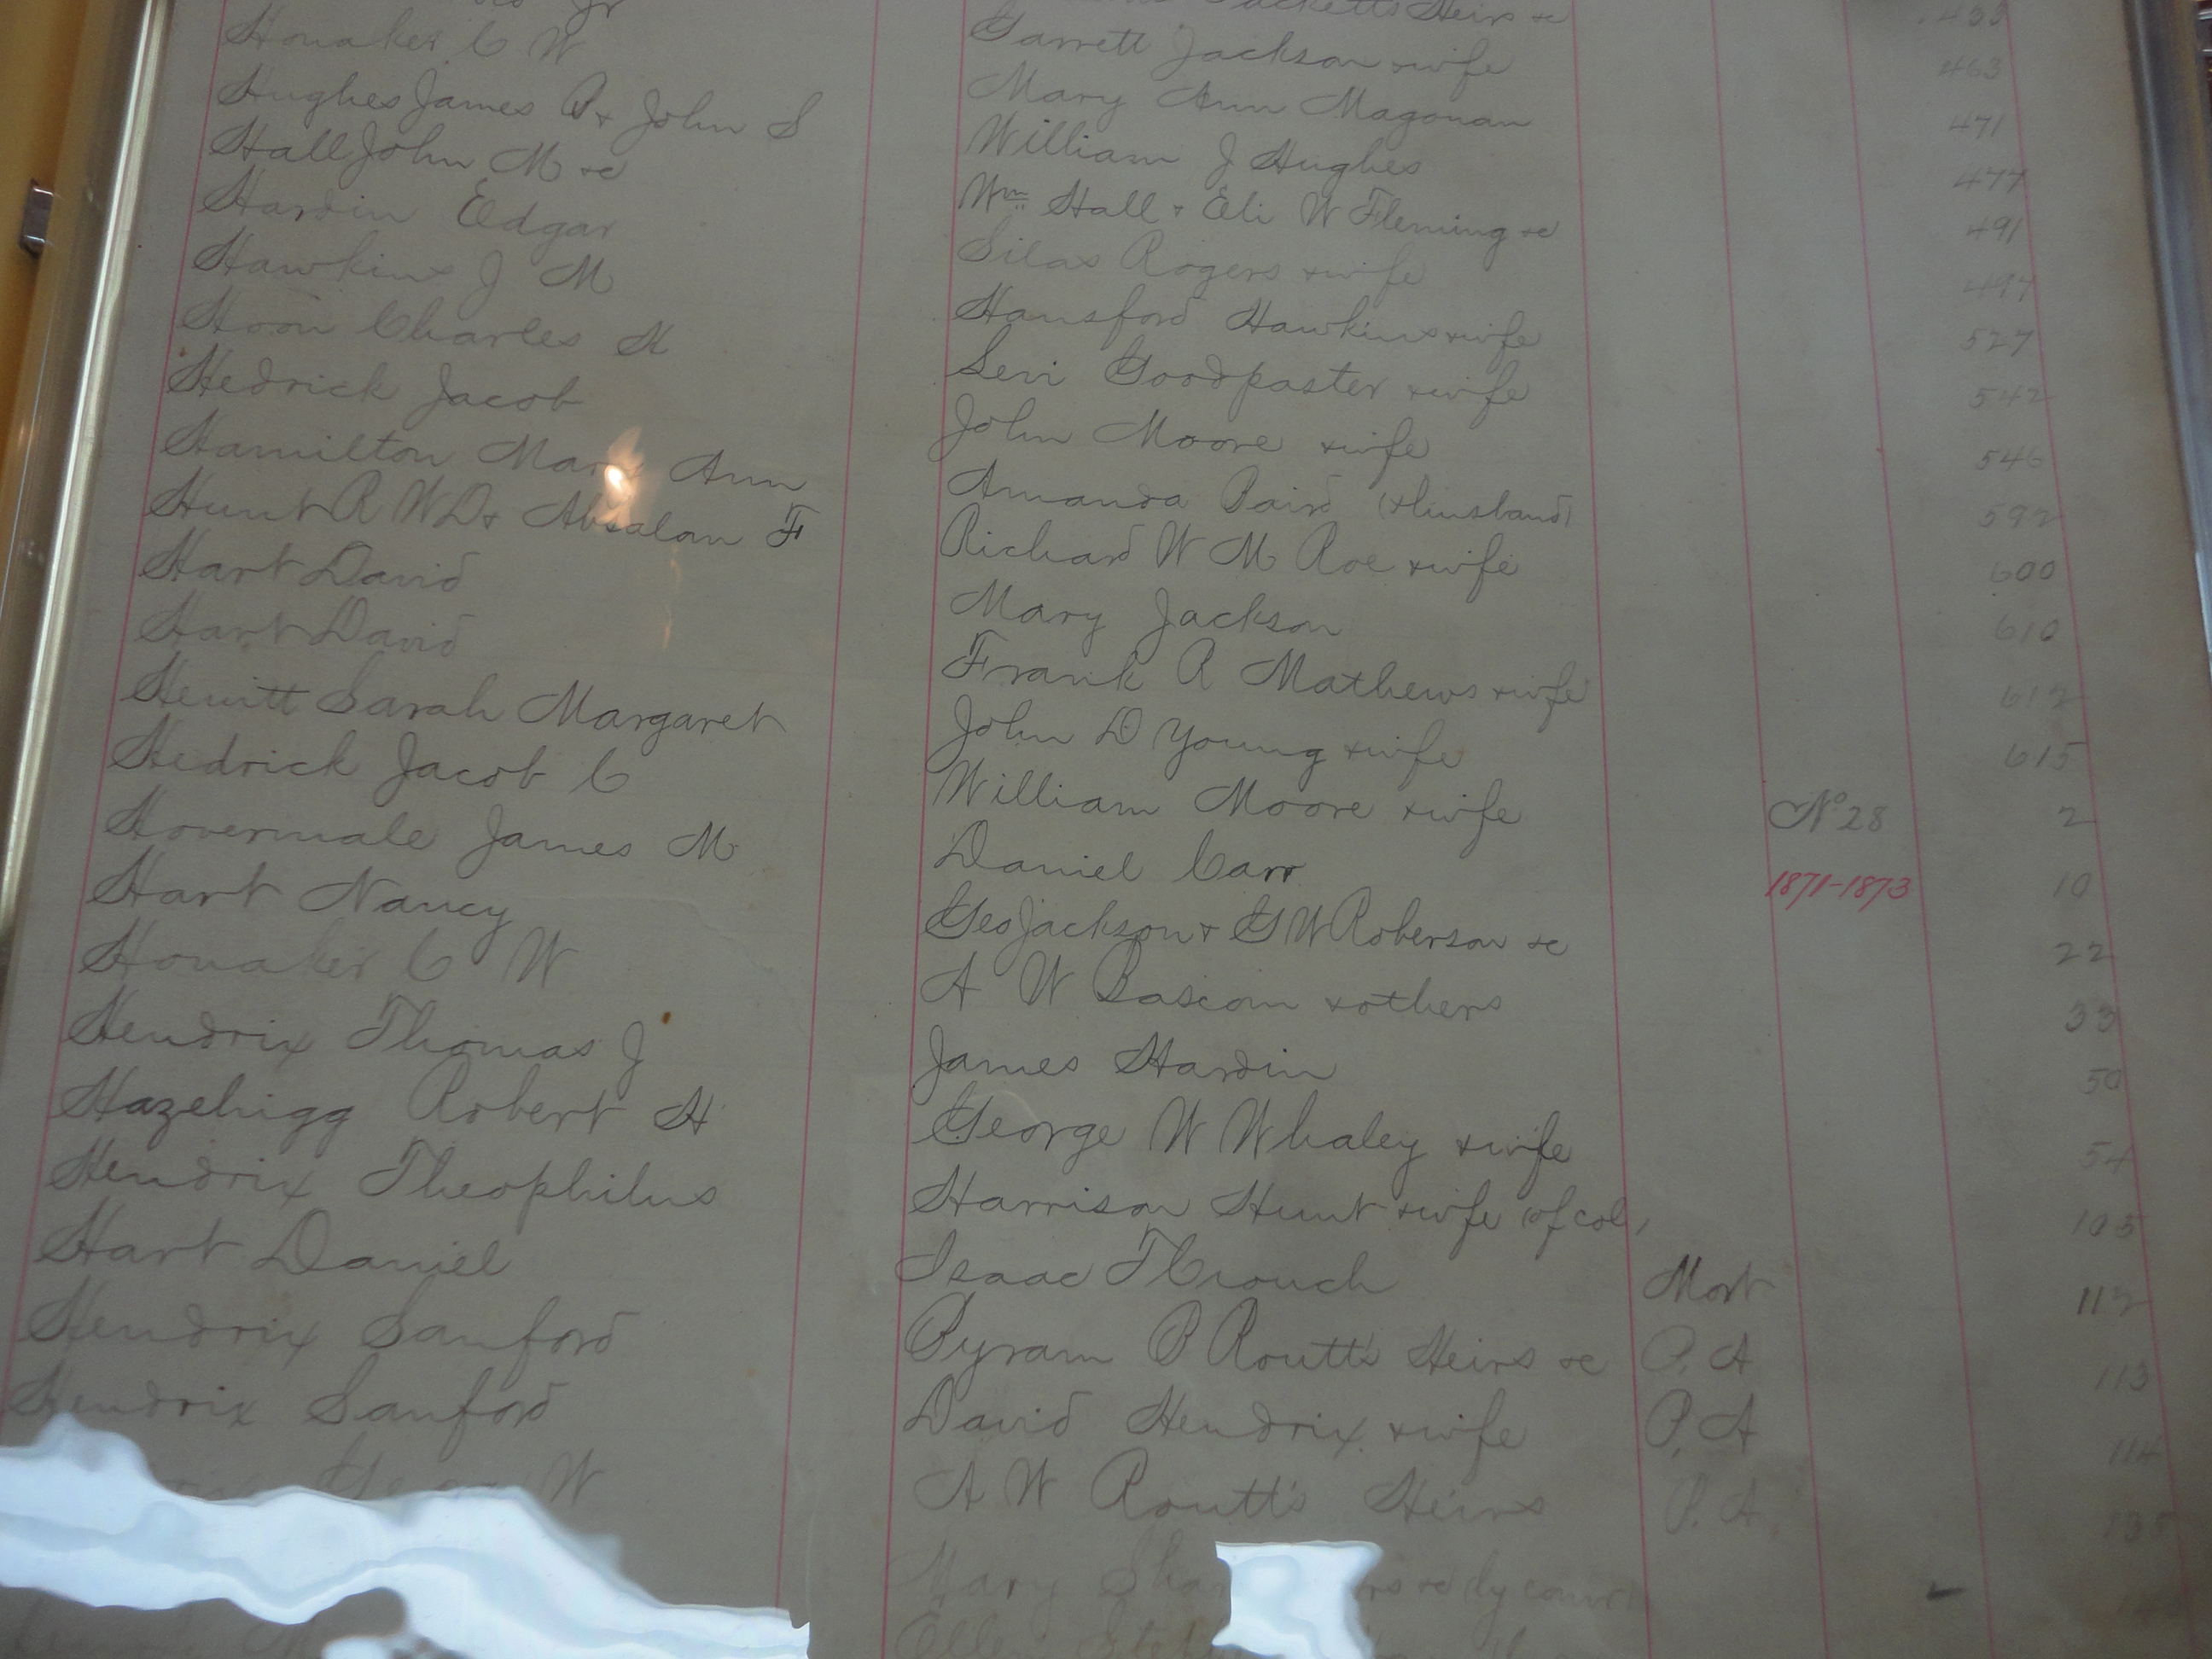 Heirs &c
Garrett Jackson & wife 463
Honaker C W Mary Ann Magowan 471
Hughes James P & John S William J Hughes 477
Hall John M &c Wm Hall & Eli W Fleming &c 491
Hardin Edgar Silas Rogers & wife 497
Hawkins J M Hansford Hawkins & wife 527
Hoon Charles H Levi Goodpaster & wife 542
Hedrick Jacob John Moore & wife 546
Hamilton Mary Ann Amanda Baird (& husband) 592
Hunt R W D & Absalom F Richard W M Roe & wife 600
Hart David Mary Jackson 610
Hart David Frank R Mathews & wife 612
Hewitt Sarah Margaret John D Young & wife 615
Hedrick Jacob C William Moore & wife No 28 2
Hovermale James M Daniel Carr 1871-1873 10
Hart Nancy Geo Jackson & G W Roberson &c 22
Honaker C W A W Bascom & others 33
Hendrix Thomas J James Hardin 50
Hazelrigg Robert H George W Whaley & wife 54
Hendrix Theophilus Harrison Hunt & wife (of col) 105
Hart Daniel Isaac T Crouch Mort 112
Hendrix Sanford Pyram P Routt's Heirs &c P. A 113
Hendrix Sanford David Hendrix & wife P. A 114
W A W Routt's Heirs P. A 135
Mary &c by